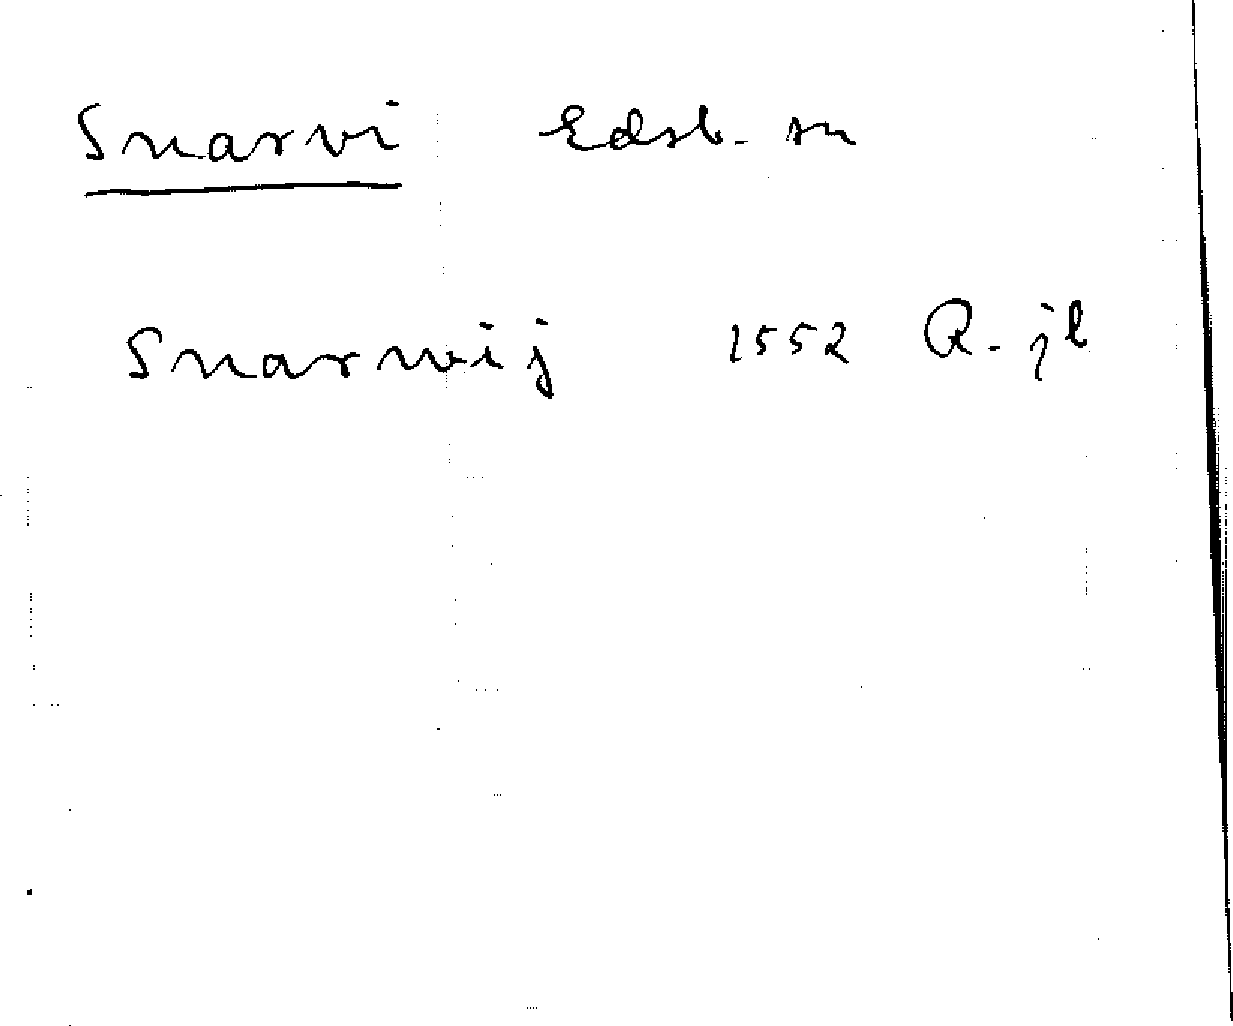 Snarvi Edsb. sn
Snarwij 1552 R. jb